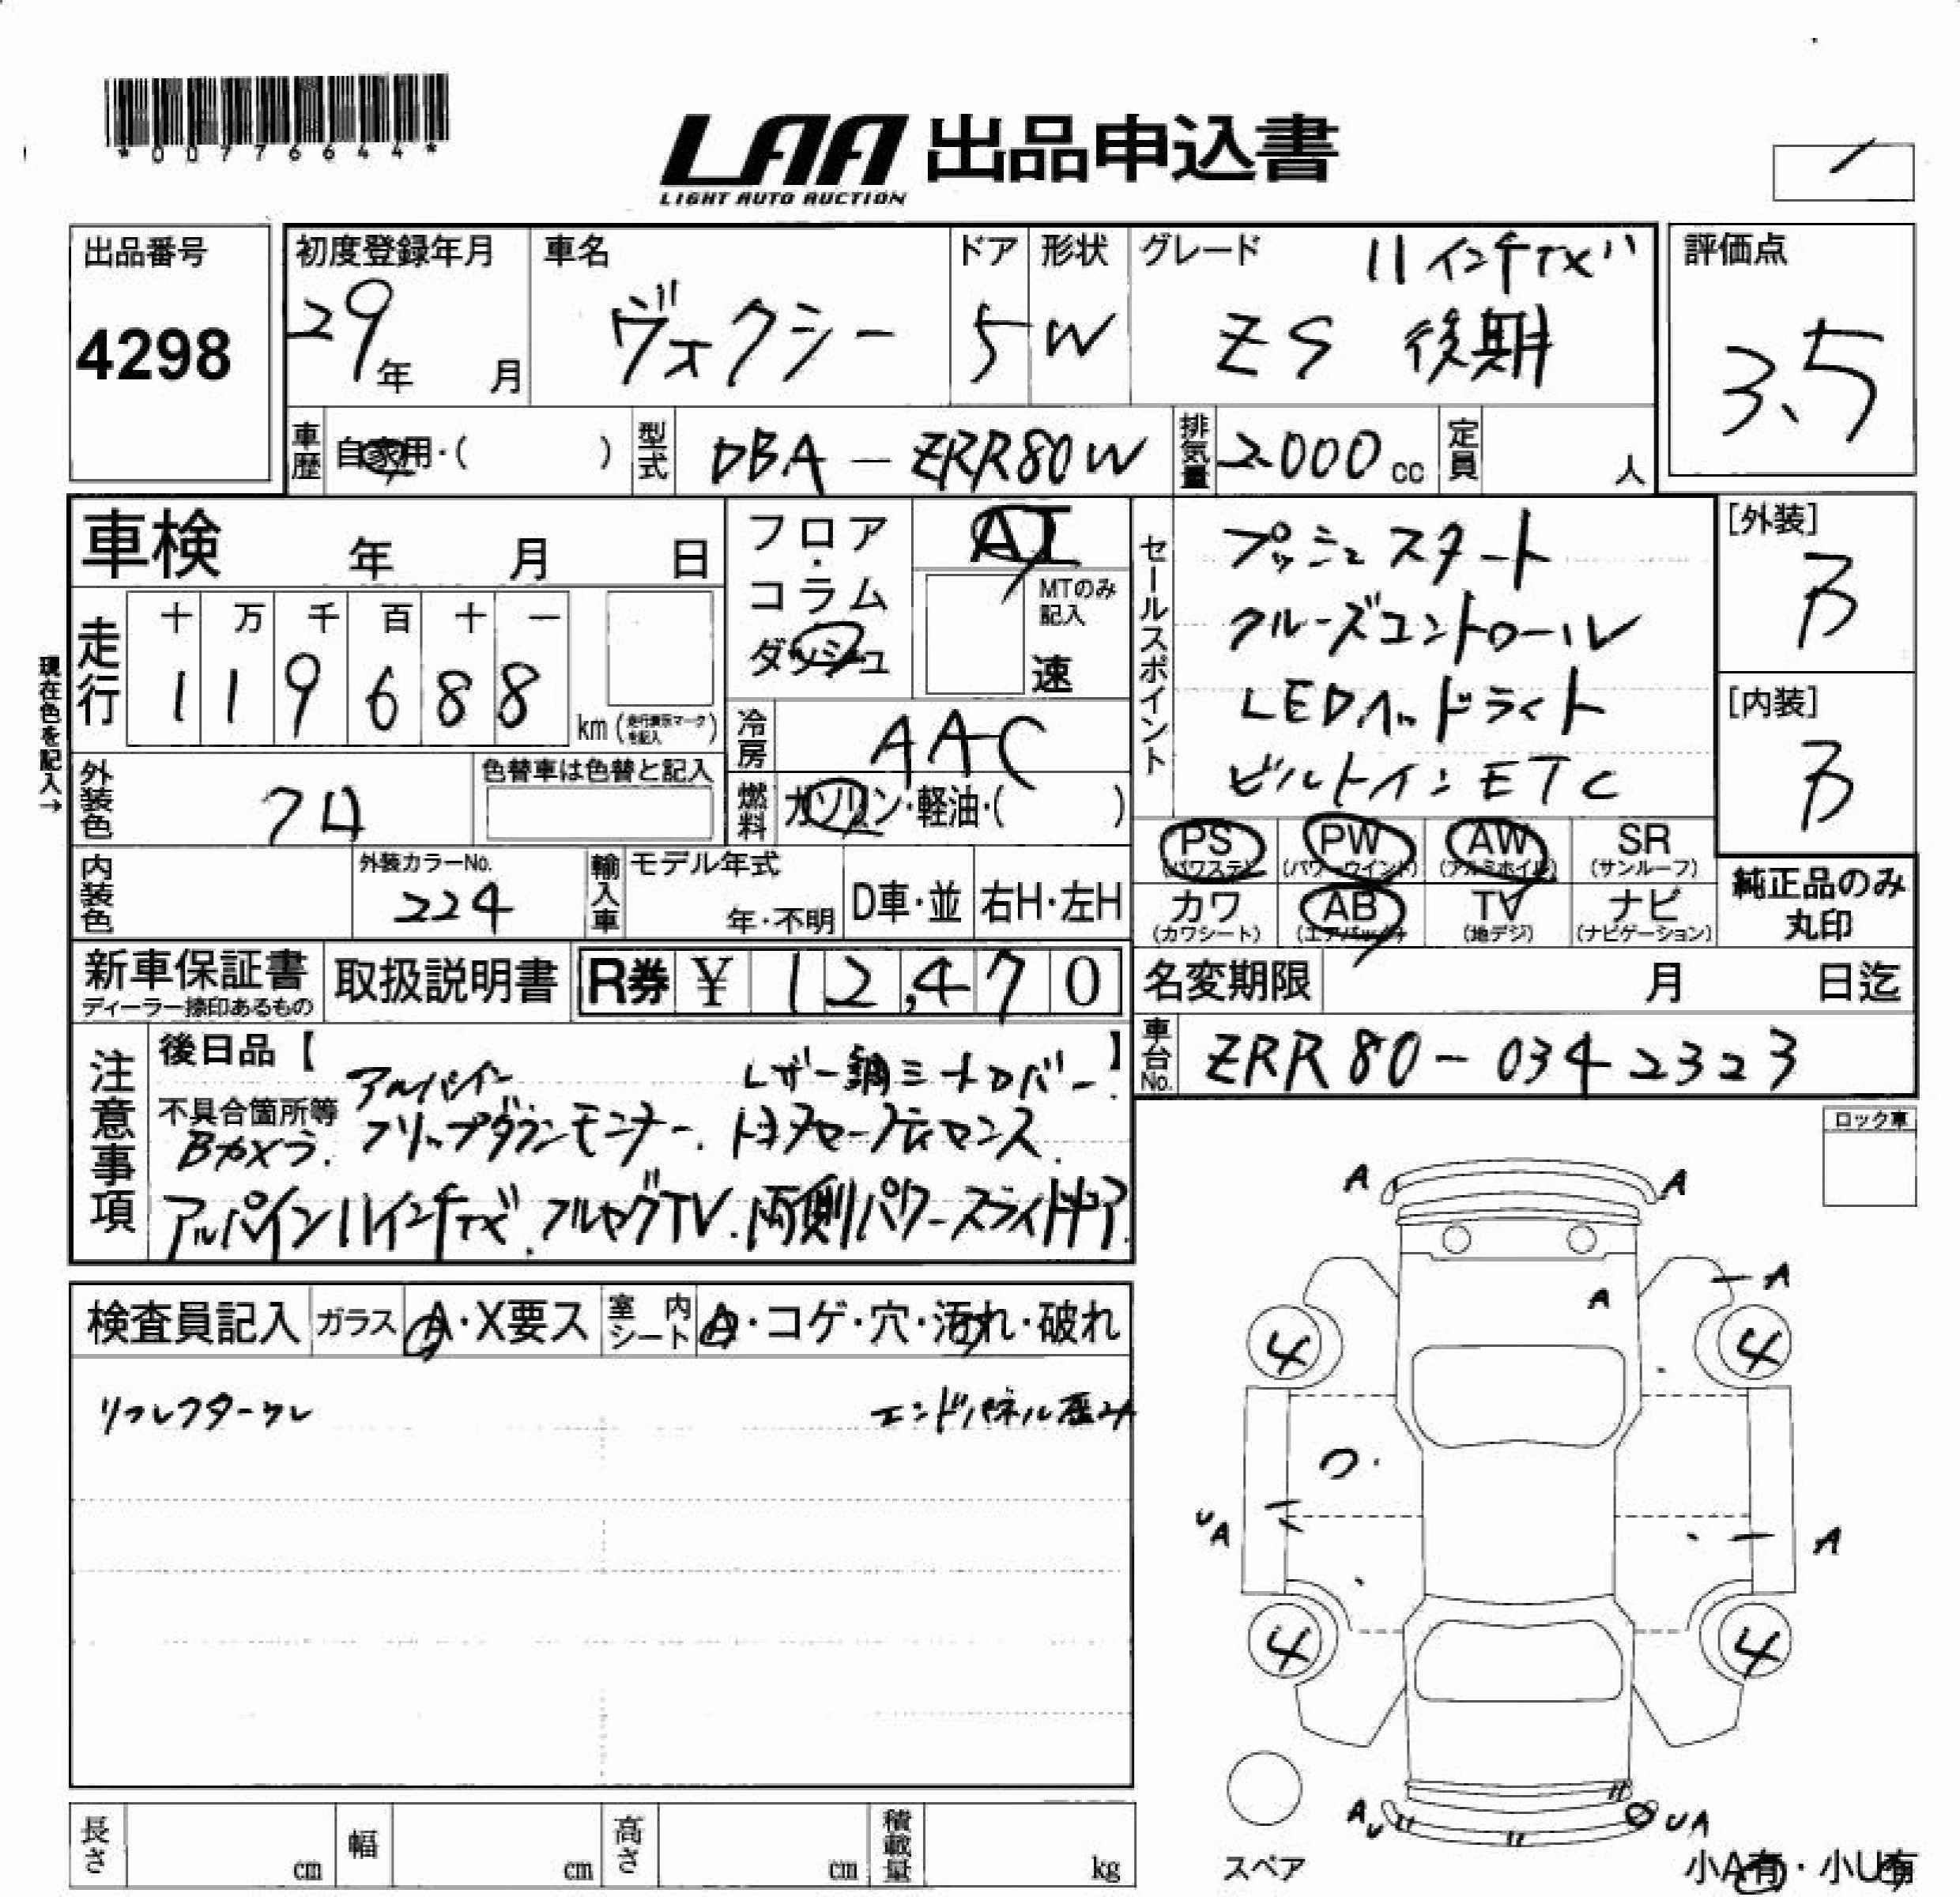 *00776644*
LAA 出品申込書
LIGHT AUTO AUCTION
出品番号
4298
初度登録年月
29年 月
車名
ヴォクシー
ドア
5
形状
W
グレード
11インチTXバ
ZS 後期
評価点
3.5
車歴 自家用・( )
型式 DBA-ZRR80W
排気量 2000cc
定員 人
車検 年 月 日
フロア・コラム
ダッシュ
AT
MTのみ記入
速
セールスポイント
プッシュスタート
クルーズコントロール
LEDヘッドライト
ビルトインETC
[外装]
B
[内装]
B
現在色を記入→
走行
十 万 千 百 十 一
1 1 9 6 8 8
km (走行表示マークを記入)
冷房 AAC
燃料 ガソリン・軽油・( )
外装色 クロ
色替車は色替と記入
内装色
外装カラーNo.
224
輸入車
モデル年式
年・不明
D車・並
右H・左H
PS
(パワステ)
PW
(パワーウインド)
AW
(アルミホイル)
SR
(サンルーフ)
カワ
(カワシート)
AB
(エアバック)
TV
(地デジ)
ナビ
(ナビゲーション)
純正品のみ
丸印
新車保証書
ディーラー捺印あるもの
取扱説明書
R券 ¥ 12,470
名変期限 月 日迄
車台No. ZRR80-0342323
注意事項
後日品【 】
アルパイン レザー調シートカバー.
不具合箇所等
Bカメラ. フリップダウンモニター. トヨタセーフティセンス.
アルパイン11インチTXバ. フルセグTV. 両側パワースライドドア
ロック車
検査員記入
ガラス
A・X要ス
室内シート
A・コゲ・穴・汚れ・破れ
リフレクターワレ エンドパネル歪み
A A
A
A
4 4
UA A
4 4
AU UA
スペア
小A有・小U有
長さ cm
幅 cm
高さ cm
積載量 kg